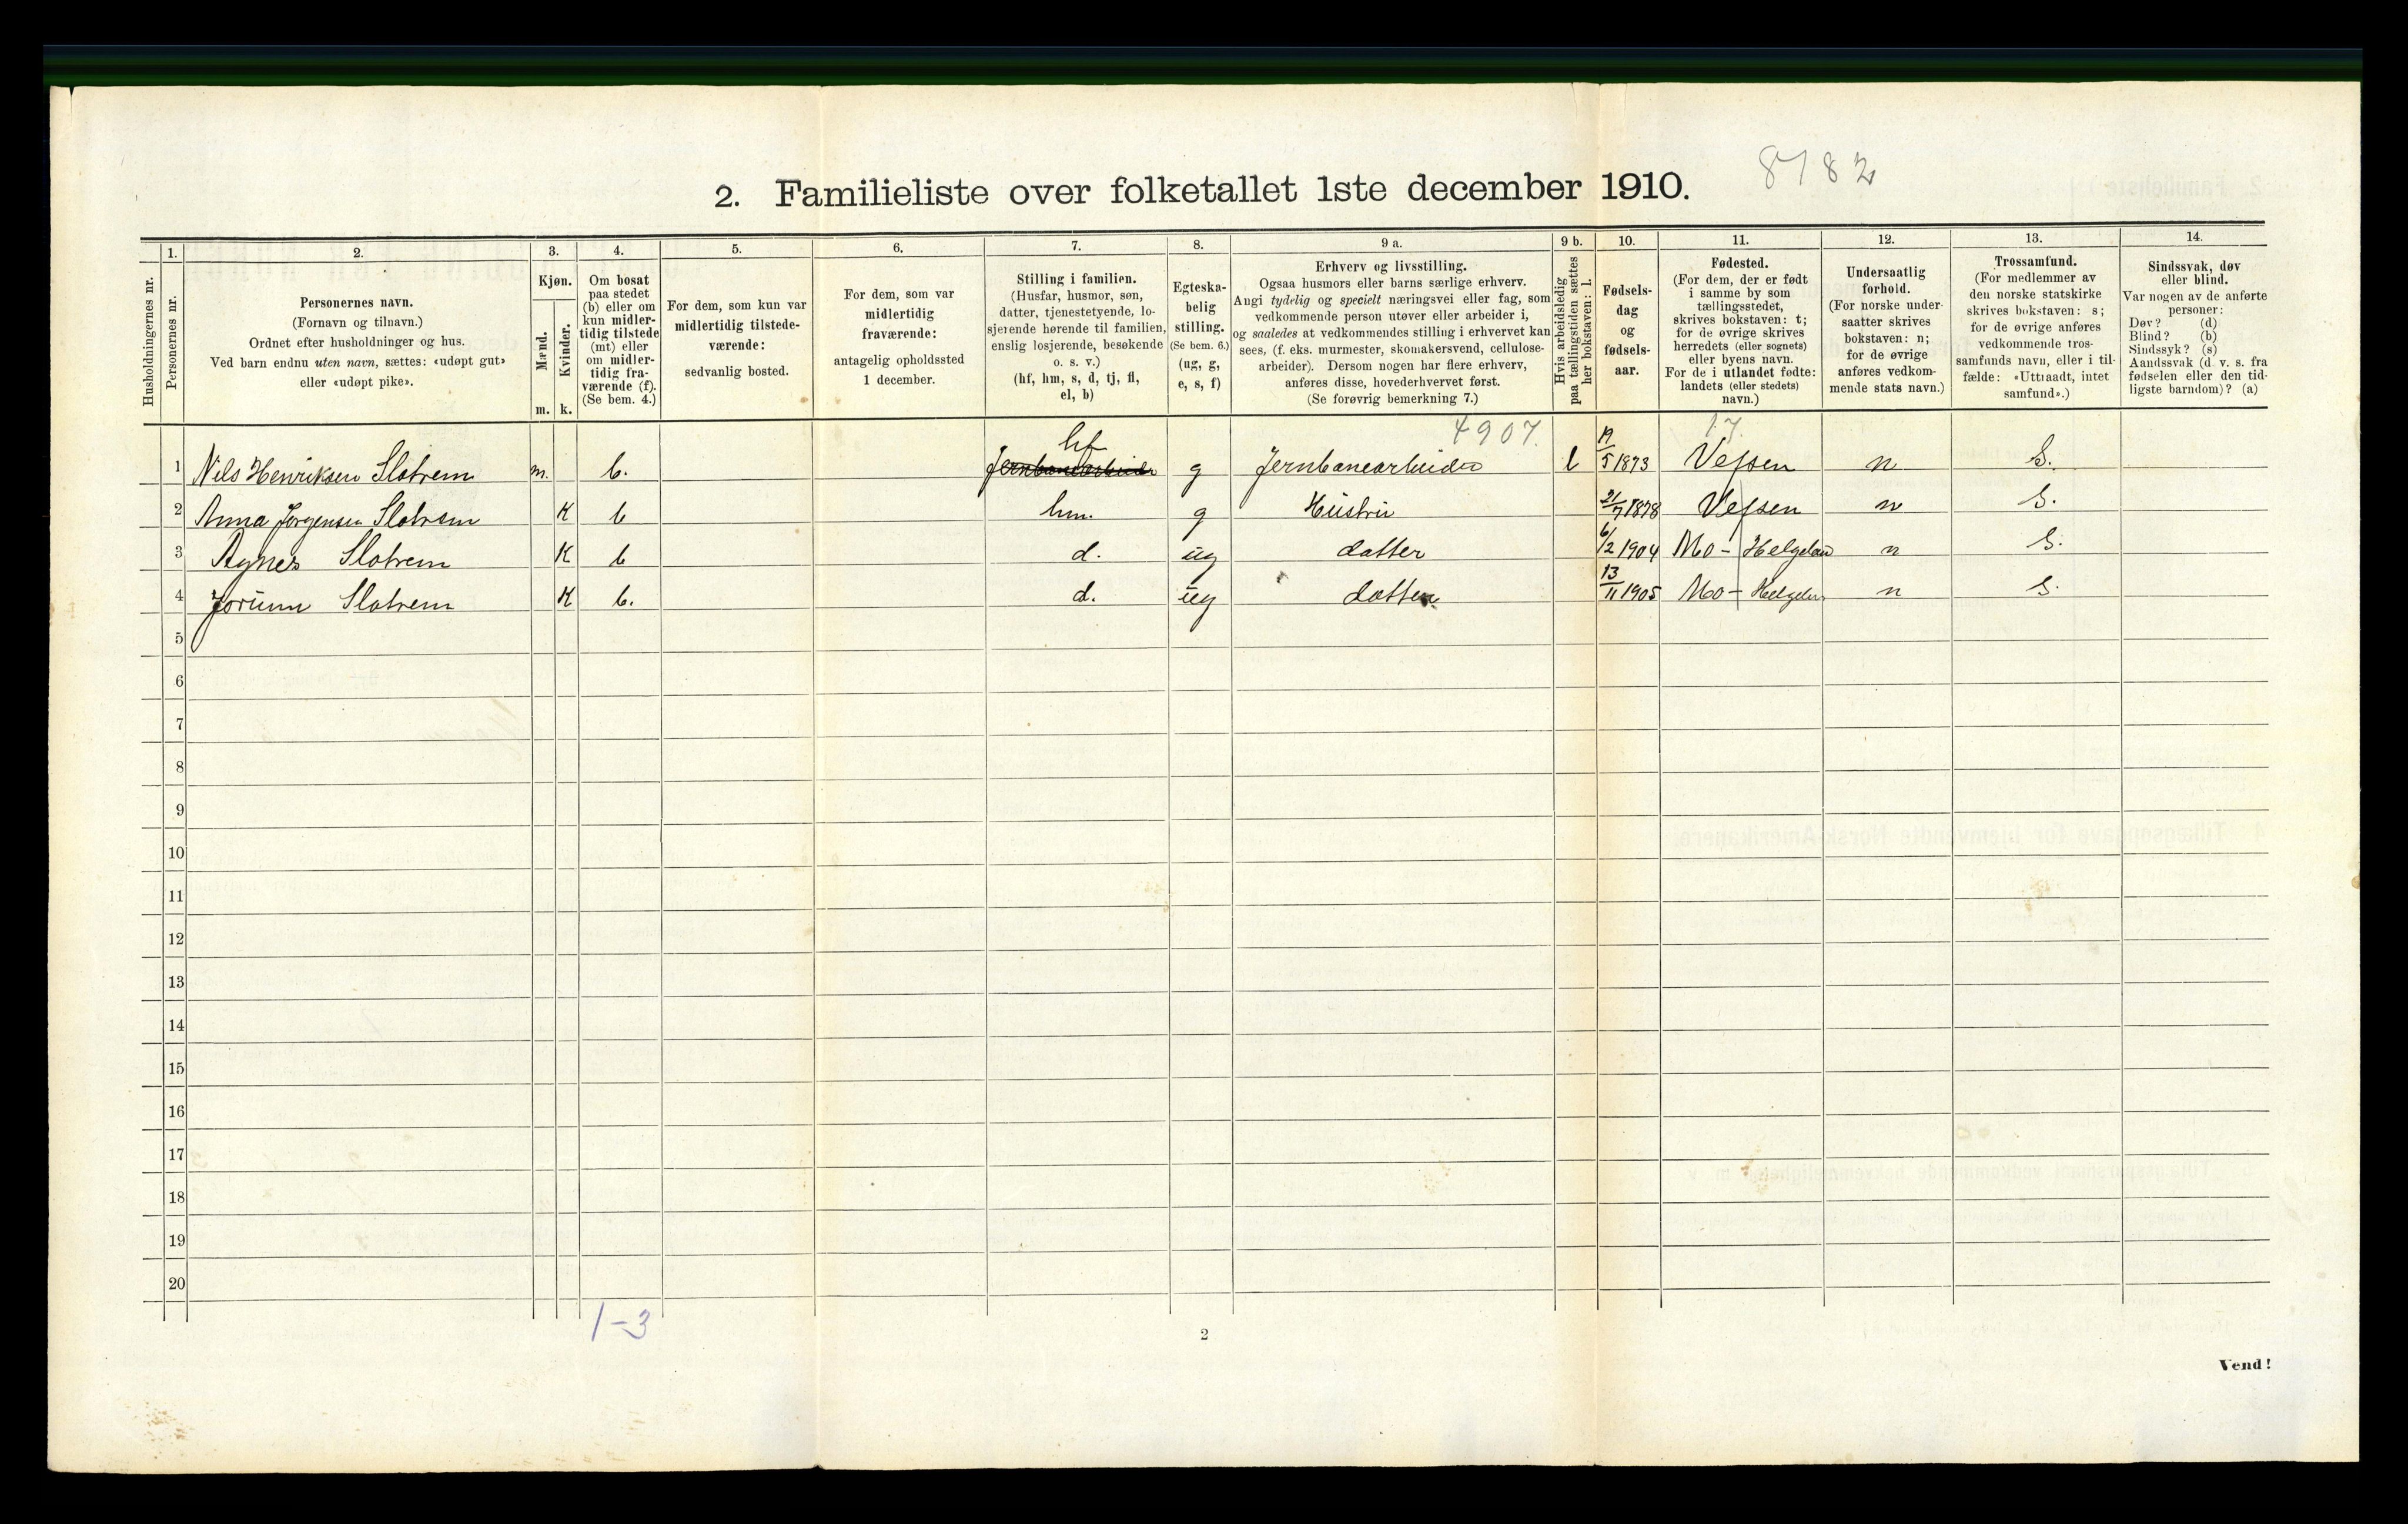 8782
2. Familieliste over folketallet 1ste december 1910.
1. 2. 3. 4. 5. 6. 7. 8. 9 a. 9 b. 10. 11. 12. 13. 14.
Husholdningernes nr.
Personernes nr.
Personernes navn.
(Fornavn og tilnavn.)
Ordnet efter husholdninger og hus.
Ved barn endnu uten navn, sættes: «udøpt gut»
eller «udøpt pike».
Kjøn.
Mænd.
Kvinder.
m. k.
Om bosat
paa stedet
(b) eller om
kun midler-
tidig tilstede
(mt) eller
om midler-
tidig fra-
værende (f).
(Se bem. 4.)
For dem, som kun var
midlertidig tilstede-
værende:
sedvanlig bosted.
For dem, som var
midlertidig
fraværende:
antagelig opholdssted
1 december.
Stilling i familien.
(Husfar, husmor, søn,
datter, tjenestetyende, lo-
sjerende hørende til familien,
enslig losjerende, besøkende
o. s. v.)
(hf, hm, s, d, tj, fl,
el, b)
Egteska-
belig
stilling.
(Se bem. 6.)
(ug, g,
e, s, f)
Erhverv og livsstilling.
Ogsaa husmors eller barns særlige erhverv.
Angi tydelig og specielt næringsvei eller fag, som
vedkommende person utøver eller arbeider i,
og saaledes at vedkommendes stilling i erhvervet kan
sees, (f. eks. murmester, skomakersvend, cellulose-
arbeider). Dersom nogen har flere erhverv,
anføres disse, hovederhvervet først.
(Se forøvrig bemerkning 7.)
Hvis arbeidsledig
paa tællingstiden sættes
her bokstaven: l.
Fødsels-
dag
og
fødsels-
aar.
Fødested.
(For dem, der er født
i samme by som
tællingsstedet,
skrives bokstaven: t;
for de øvrige skrives
herredets (eller sognets)
eller byens navn.
For de i utlandet fødte:
landets (eller stedets)
navn.)
Undersaatlig
forhold.
(For norske under-
saatter skrives
bokstaven: n;
for de øvrige
anføres vedkom-
mende stats navn.)
Trossamfund.
(For medlemmer av
den norske statskirke
skrives bokstaven: s;
for de øvrige anføres
vedkommende tros-
samfunds navn, eller i til-
fælde: «Uttraadt, intet
samfund».)
Sindssvak, døv
eller blind.
Var nogen av de anførte
personer:
Døv? (d)
Blind? (b)
Sindssyk? (s)
Aandssvak (d. v. s. fra
fødselen eller den tid-
ligste barndom)? (a)
hf 4907. 17.
1 Nils Henriksen Slotrem m. b. Jernbanearbeider g Jernbanearbeider l 19/5 1873 Vefsen n S.
2 Anna Jørgensen Slotrem K b hm. g Hustru 21/7 1878 Vefsen n S.
3 Agnes Slotrem K b d. ug datter 6/2 1904 Mo - Helgeland n S.
4 Jorunn Slotrem K b. d. ug datter 13/11 1905 Mo - Helgeland n S.
5
6
7
8
9
10
11
12
13
14
15
16
17
18
19
20
1-3
2
Vend!